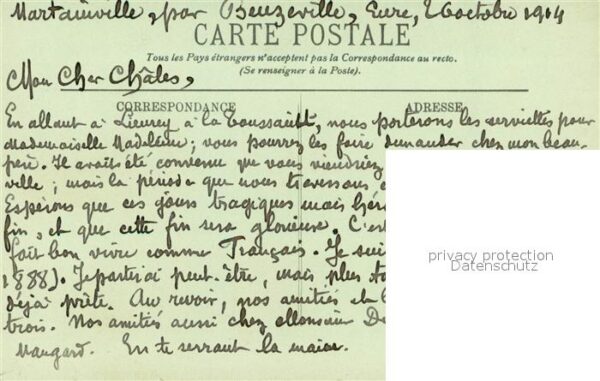 Martainville, par Beuzeville, Eure, 26 octobre 1914
CARTE POSTALE
Tous les Pays étrangers n'acceptent pas la Correspondance au recto.
(Se renseigner à la Poste).
Mon Cher Châles,
CORRESPONDANCE ADRESSE
En allant à Lieurey à la Toussaint, nous porterons les serviettes pour
Mademoiselle Madeleine; vous pourrez les faire demander chez mon beau-
père. Il avait été convenu que vous viendriez
ville; mais la période que nous traversons
Espérons que ces jours tragiques mais
fin, et que cette fin sera glorieuse. C'est
fait bon vivre comme Français. Je suis
1888). Je partirai peut-être, mais plus
déjà prête. Au revoir, nos amitiés et
trois. Nos amitiés aussi chez Monsieur
Maugard. En te serrant la main.
privacy protection
Datenschutz